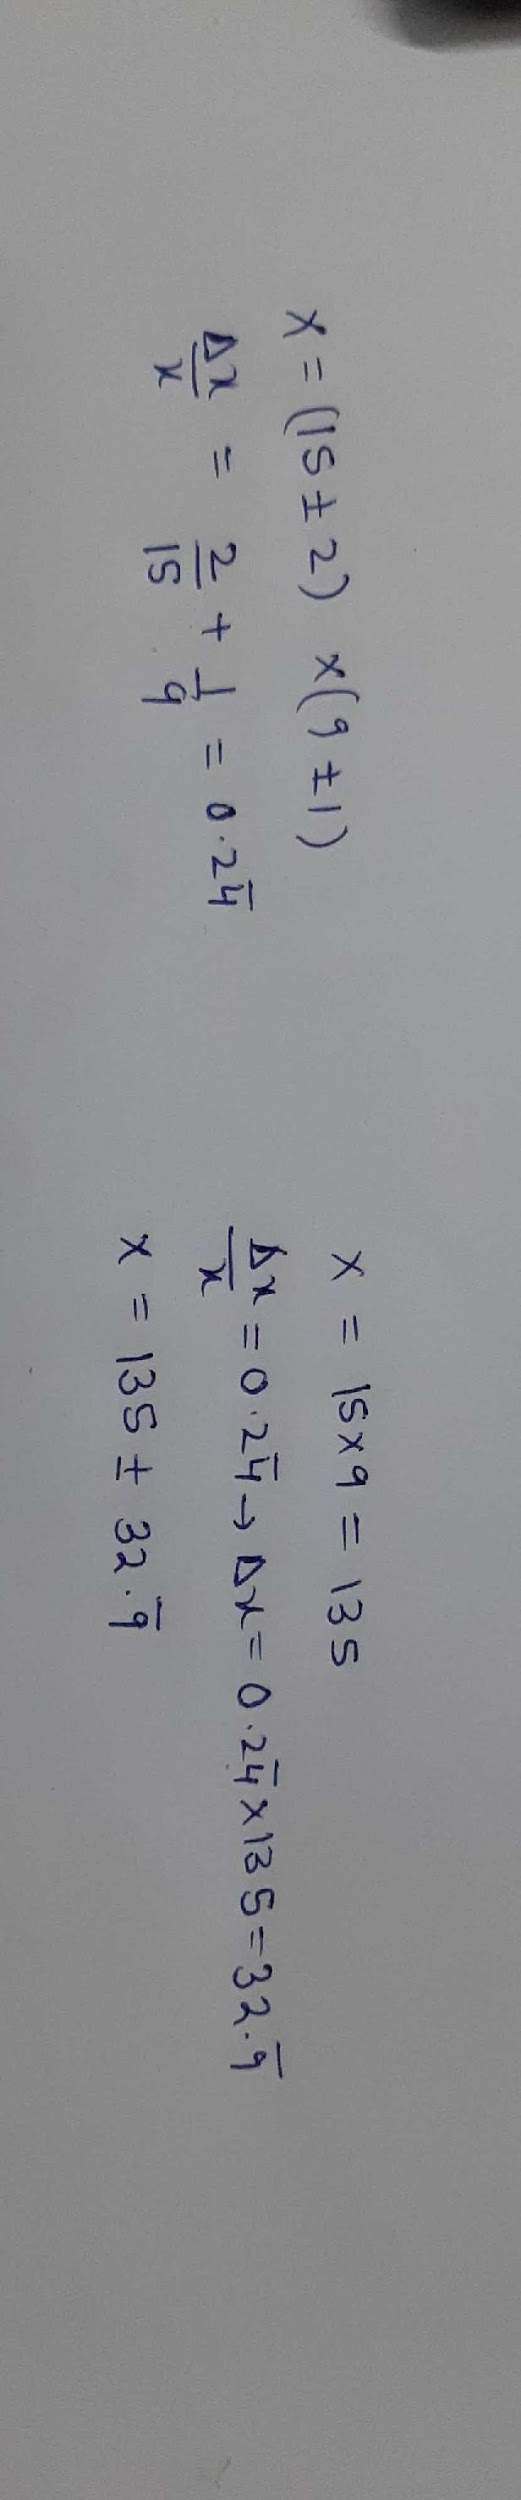 x = (15 ± 2) x (9 ± 1)
Δx/x = 2/15 + 1/9 = 0.24̅
x = 15 x 9 = 135
Δx/x = 0.24̅ → Δx = 0.24̅ x 135 = 32.9̅
x = 135 ± 32.9̅